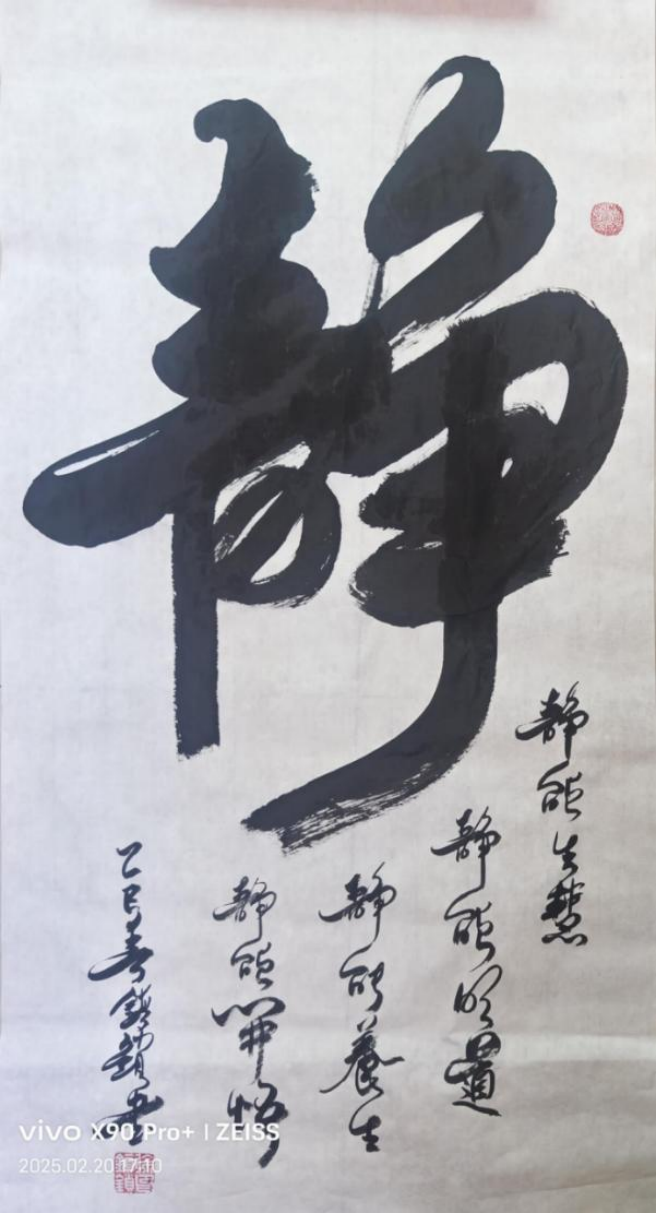 静
静能生慧
静能明道
静能養生
静能開悟
乙巳春
vivo X90 Pro+ | ZEISS
2025.02.20 17:10